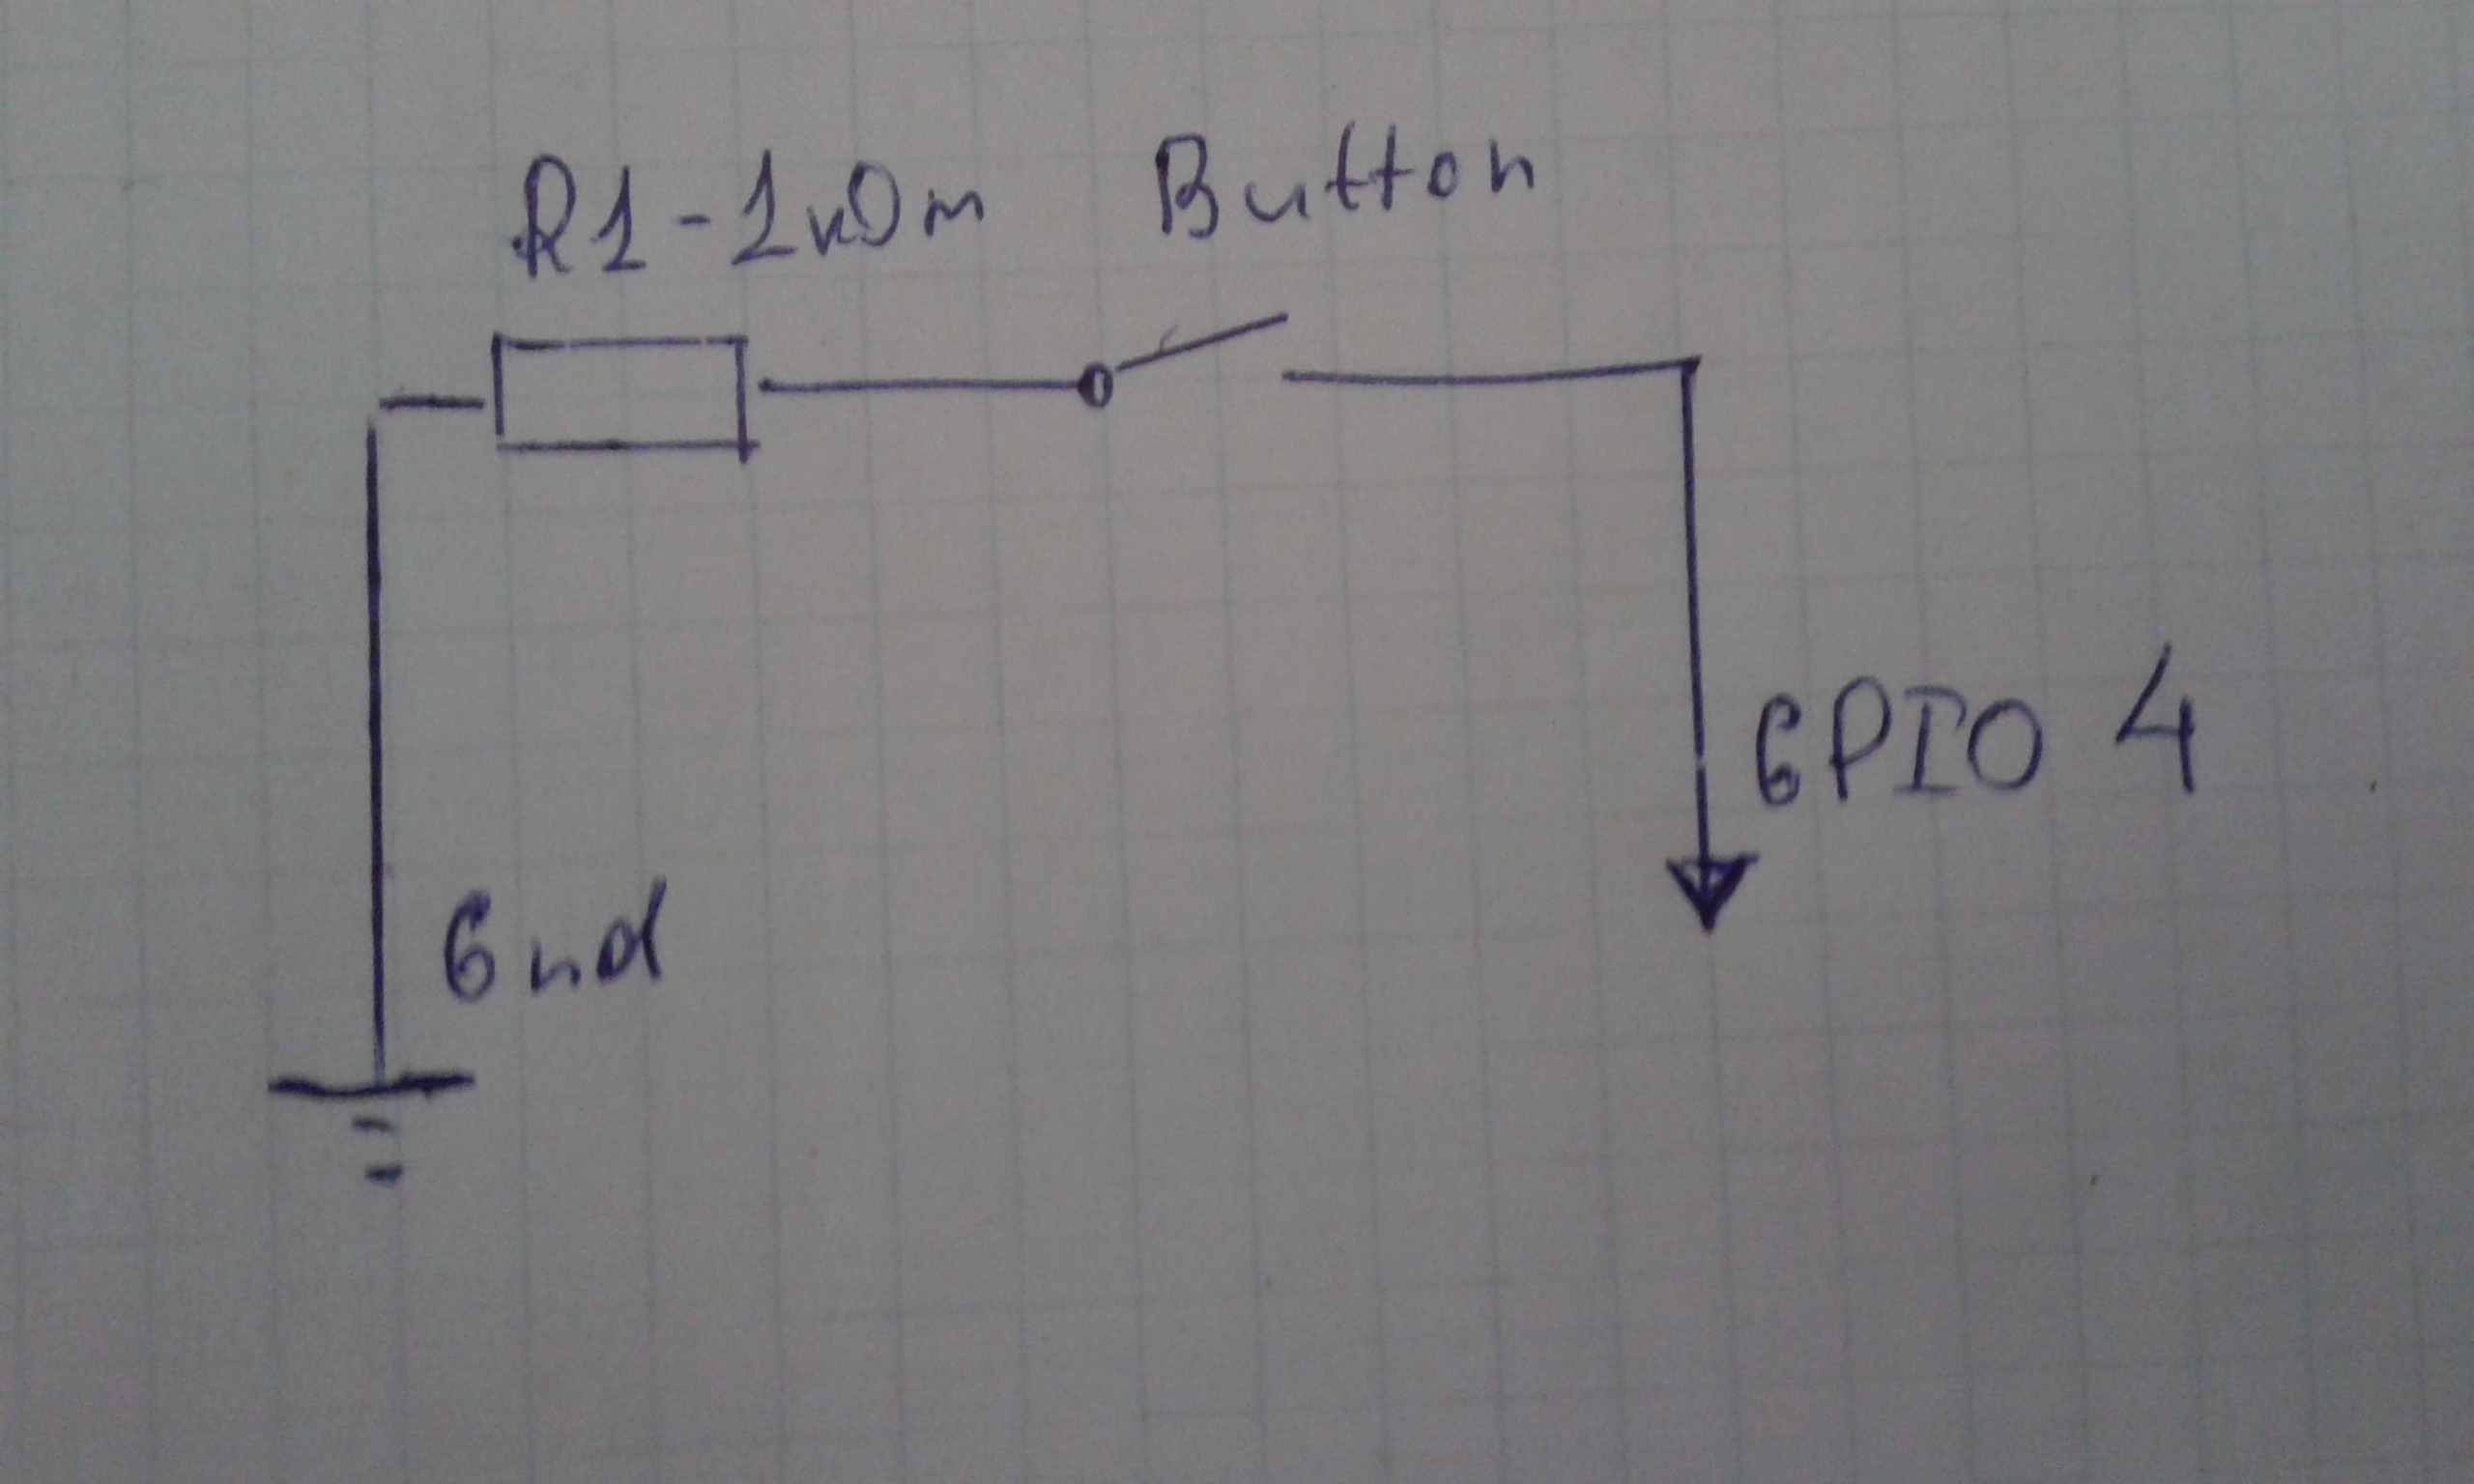 R1-1кОм Button
GPIO 4
Gnd